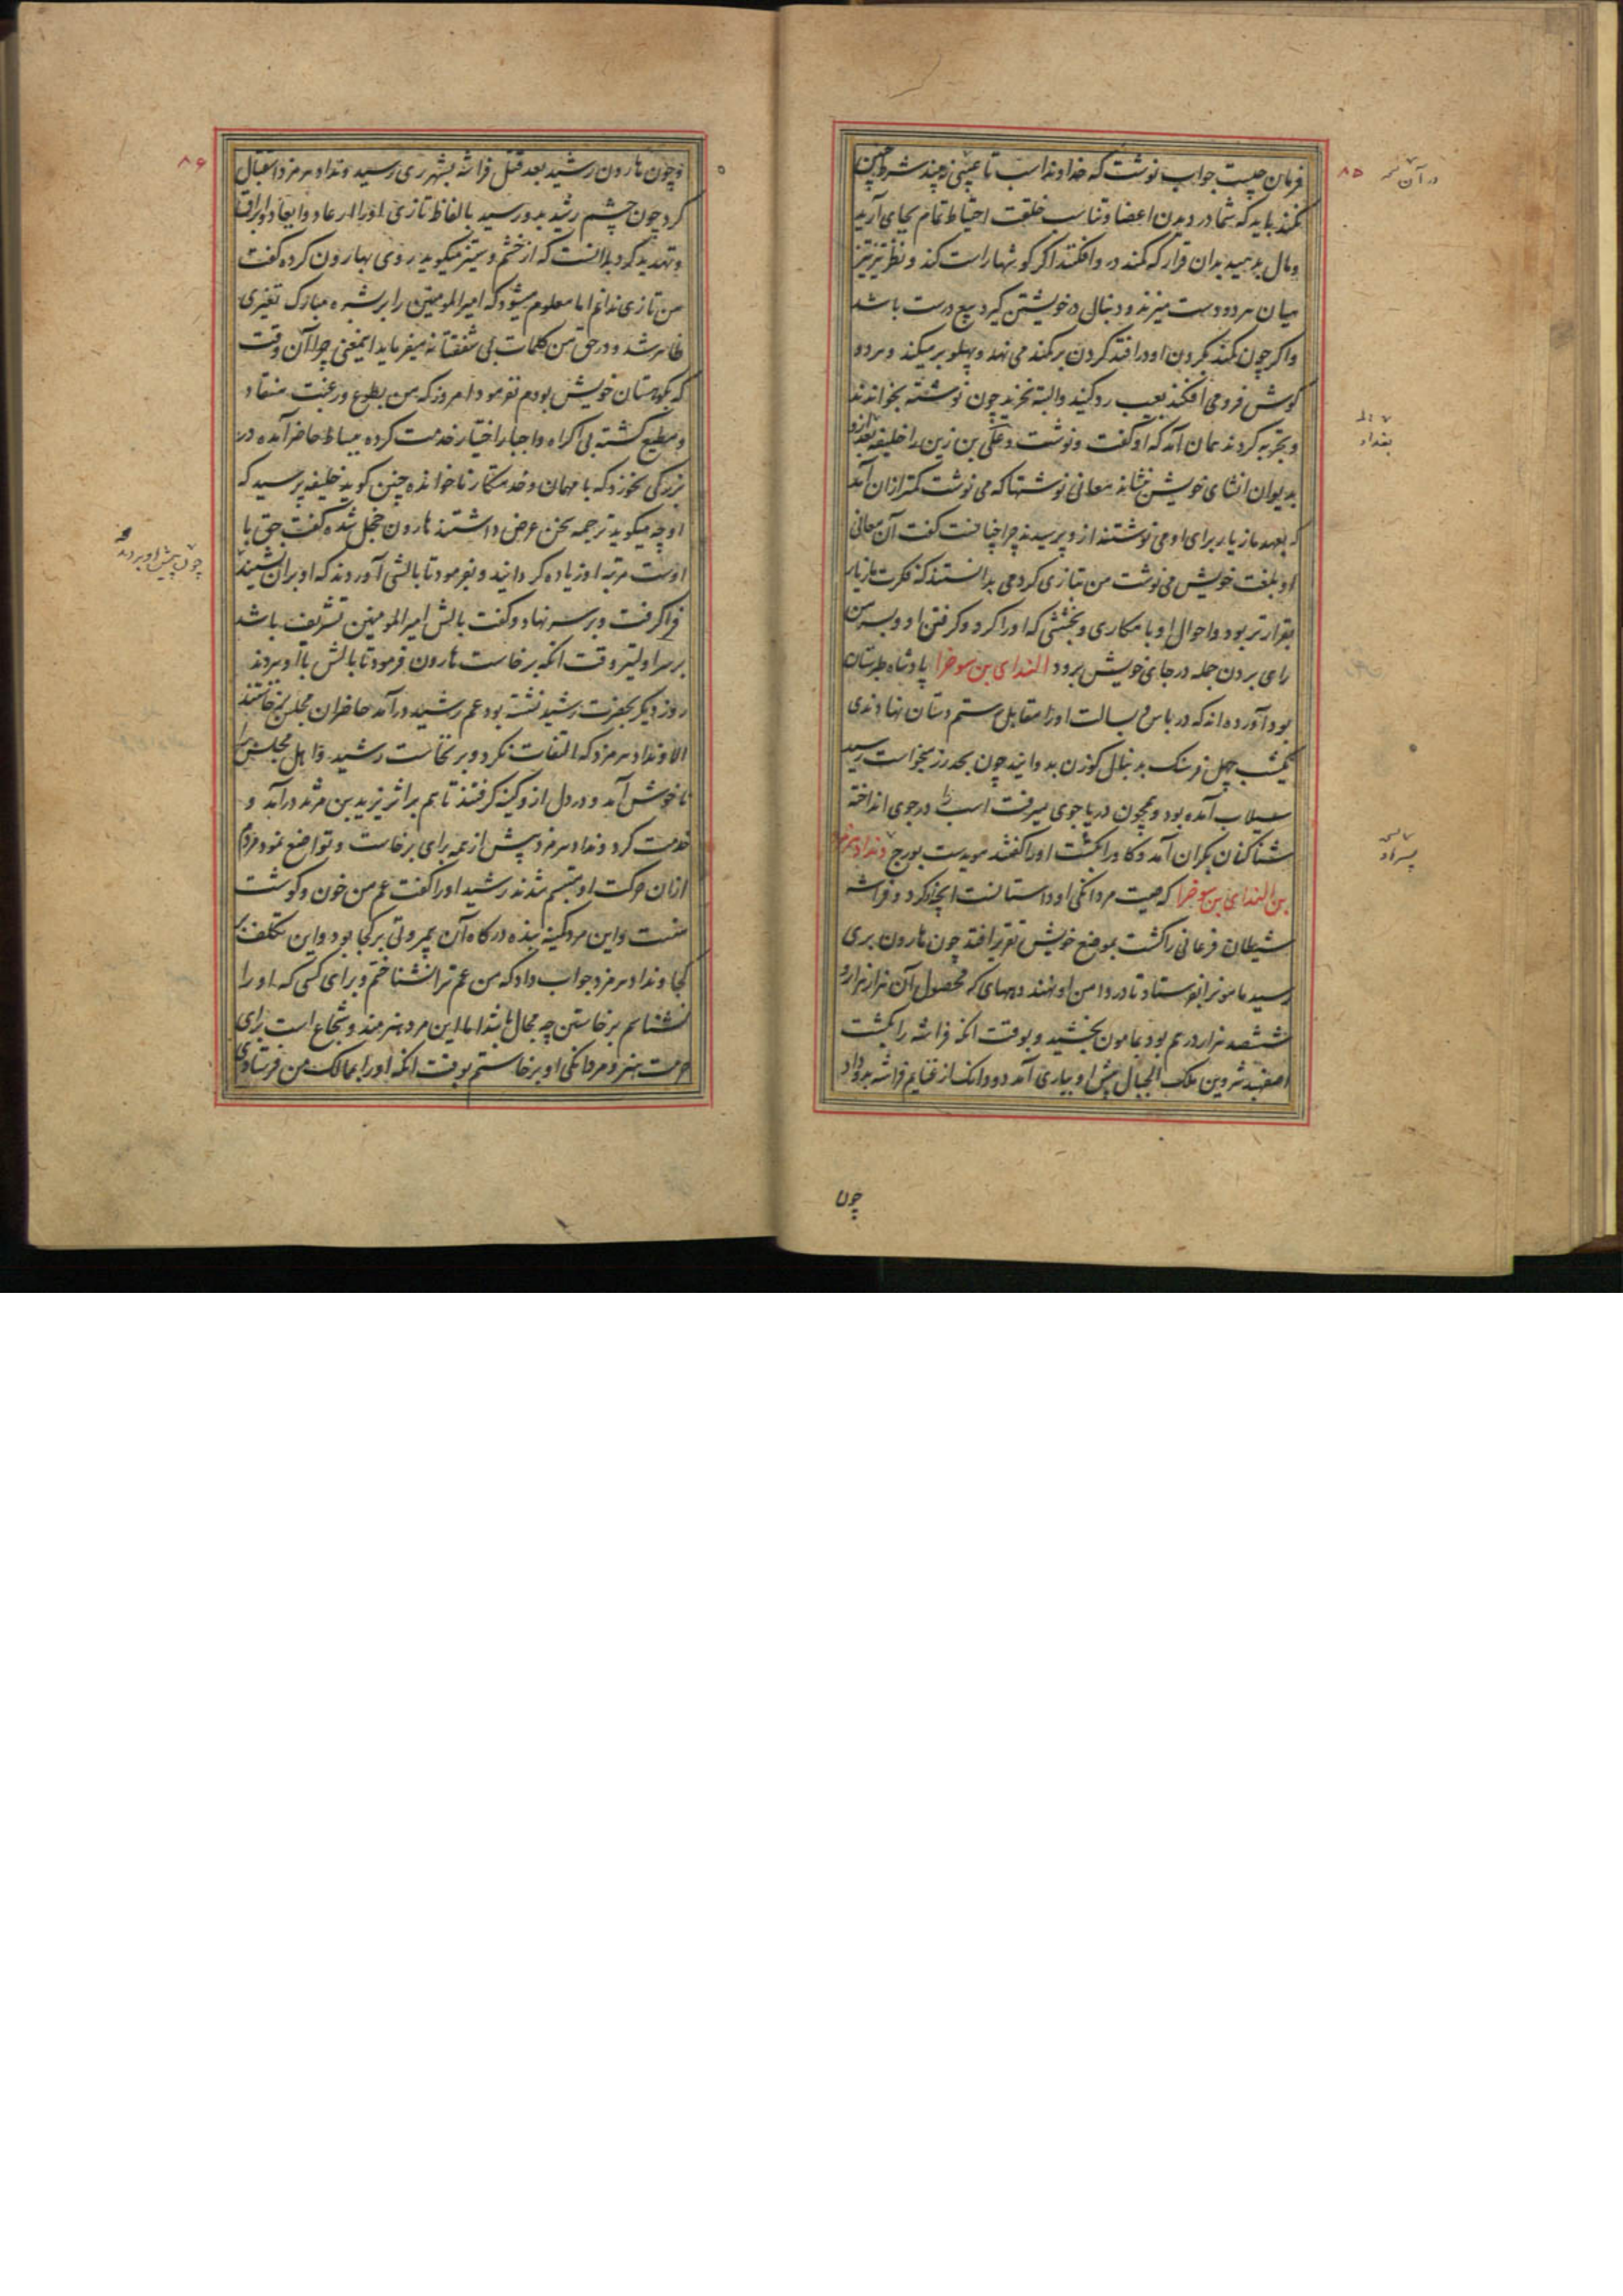 فرمان چیست جواب نوشت که خداوند اسب تا عیبی زه چند شرط چنین
نکنند باید که شما در دیدن اعضا و تناسب خلقت احتیاط تمام بجای آرید
و مال بدهید بدان قرار که کمند در وافکنند اگر گوشها راست کند و نظر تیز تیز
میان هر دو دست میزند و دنبال در خویشتن گیرد بیع درست باشد
و اگر چون کمند بگردن او درافتد گردن بر کمند می نهد و پهلو بر میکند و هر دو
گوش فرو می افکند بعیب رد کنید و البته نخرید چون نوشته بخواندند
و تجربه کردند همان آمد که او گفت و نوشت و علی بن زین را خلیفه بعد ازو
بدیوان انشای خویش بنشاند معانی نوشتها که می نوشت کمتر ازان آمد
که بعهد مازیار برای او می نوشتند ازو پرسیدند چرا چنانست گفت آن معانی
او بلغت خویش می نوشت من بتازی کردمی بدانستند که فکرت مازیار
بقرارتر بود و احوال او با مکاری و بخششی که او را کرد و گرفتن او و بسر من
رای بردن جمله در جای خویش برود النداى بن سوخرا پادشاه طبرستان
بود آورده اند که در باس و بسالت او را مقابل رستم دستان نهادندی
یکشب چهل فرسنگ بدنبال گوزن بدوانید چون بحد رز میخواست رسید
سیلاب آمده بود و همچون دریا جوی میرفت اسب را در جوی انداخته
شناکنان بکران آمد و گاو را بکشت او را گفتند موبدست بورج ونداد هرمزد
بن النداى بن سوخرا که صیت مردانگی او داستانست آنچه او کرد و فراشه
شیطان فرعانی را کشت بموضع خویش تقریر افتد چون هارون بری
رسید مامونرا بفرستاد تا در دامن او نهند دیههای که محصول آن هزار هزار و
ششصد هزار درهم بود بمامون بخشید و بوقت آنکه فراشه را بکشت
اصفهبد شروین ملک الجبال پیش او بیاری آمد دو دانگ از غنایم فراشه بدو داد
چون
۸۵
در آن
بغداد
و چون هارون رشید بعد قتل فراشه بشهر ری رسید ونداد هرمزد استقبال
کرد چون چشم رشید بدو رسید بالفاظ تازی او را ارعاد و ابعاد و ابراق
و تهدید کرد بدانست که از خشم و ستیز میگوید روی بهارون کرده گفت
من تازی ندانم اما معلوم میشود که امیرالمومنین را بر بشره مبارک تغیری
ظاهر شد و در حق من کلمات بی شفقتانه میفرماید اینمعنی چرا آن وقت
که بکوهستان خویش بودم نفرمود امروز که من بطوع و رغبت منقاد
و مطیع گشته بی اکراه و اجبار اختیار خدمت کرده ببساط حاضر آمده در
بزرگی نخورد که با مهمان و خدمتکار ناخوانده چنین گوید خلیفه پرسید که
او چه میگوید ترجمه سخن عرض داشتند هارون خجل شده گفت حق با
اوست مرتبه او زیاده گردانید و بفرمود تا بالشی آوردند که او بران نشیند
فراگرفت و بر سر نهاد و گفت بالش امیرالمومنین تشریف باشد
بر سر اولیتر وقت آنکه برخاست هارون فرمود تا بالش با او بردند
روز دیگر بحضرت رشید نشسته بود عم رشید درآمد حاضران مجلس برخاستند
الا ونداد هرمزد که التفات نکرد و برنخاست رشید و اهل مجلس را
ناخوش آمد و در دل ازو کینه گرفتند تا هم بر اثر یزید بن مزید درآمد و
خدمت کرد ونداد هرمزد پیش از همه برای برخاست و تواضع نمود مردم
ازان حرکت او متبسم شدند رشید او را گفت عم من خون و گوشت
منست و این مرد کمینه بنده درگاه آن بیمروتی بر کجا بود و این تکلف بر
کجا ونداد هرمزد جواب داد که من عم ترا نشناختم و برای کسی که او را
نشناسم برخاستن چه مجال باشد اما این مرد هنرمند و شجاع است برای
حرمت هنر و مردانگی او برخاستم بوقت آنکه او را بممالک من فرستادی
۸۶
چون پیش او بردند